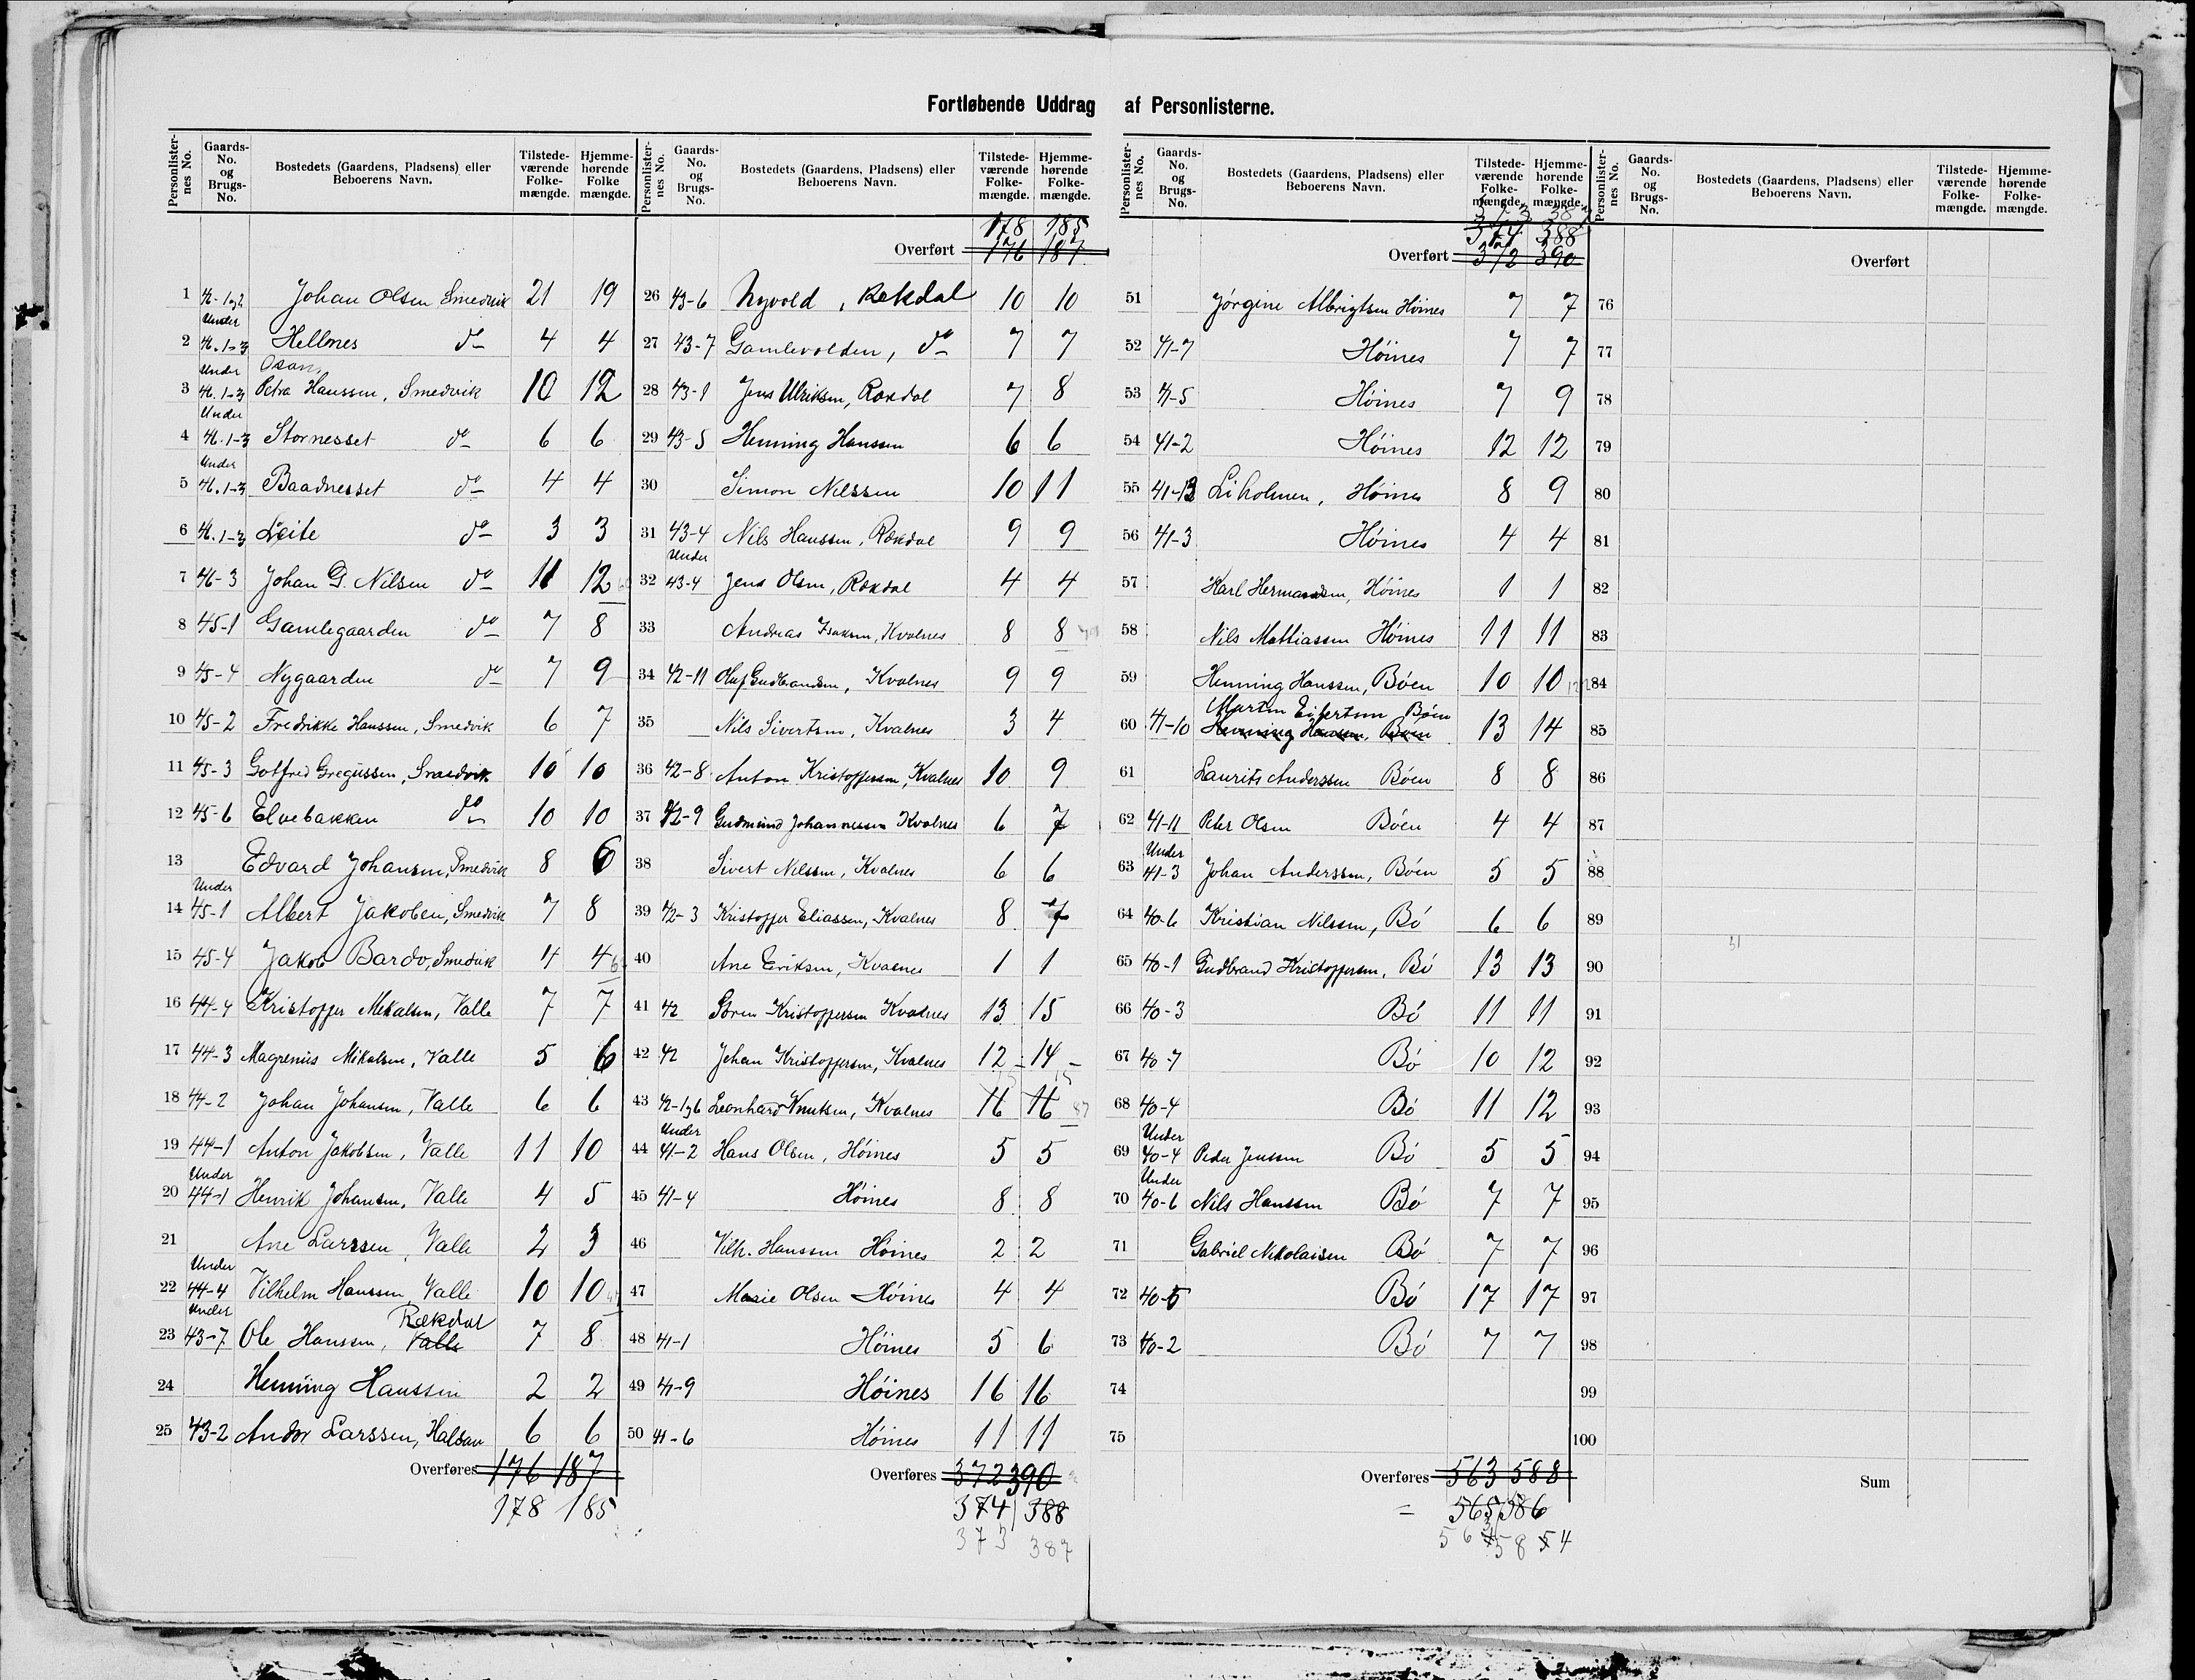 Fortløbende Uddrag af Personlisterne.
Personlister-nes No. Gaards-No. og Brugs-No. Bostedets (Gaardens, Pladsens) eller Beboerens Navn. Tilstede-værende Folke-mængde. Hjemme-hørende Folke mængde.
1 46-1og2 Johan Olsen Smedvik 21 19
2 Under 46.1-3 Hellnes do 4 4
3 Under 46.1-3 Osan, Petra Hanssen, Smedvik 10 12
4 Under 46.1-3 Stornesset do 6 6
5 Under 46.1-3 Baadnesset do 4 4
6 46.1-3 Leite do 3 3
7 46-3 Johan G. Nilsen do 11 12
8 45-1 Gamlegaarden do 7 8
9 45-4 Nygaarden do 7 9
10 45-2 Fredrikke Hanssen, Smedvik 6 7
11 45-3 Gotfred Gregussen, Smedvik 10 10
12 45-6 Elvebakken do 10 10
13 Edvard Johansen, Smedvik 8 6
14 Under 45-1 Albert Jakobsen, Smedvik 7 8
15 45-4 Jakob Bardo, Smedvik 4 4
16 44-4 Kristoffer Mikalsen, Valle 7 7
17 44-3 Magrenius Mikalsen, Valle 5 6
18 44-2 Johan Johansen, Valle 6 6
19 44-1 Anton Jakobsen, Valle 11 10
20 Under 44-1 Henrik Johansen, Valle 4 5
21 Ane Larssen, Valle 2 3
22 Under 44-4 Vilhelm Hanssen, Valle 10 10
23 Under 43-7 Ole Hanssen, Valle Rekdal 7 8
24 Henning Hanssen 2 2
25 43-2 Andor Larssen, Halsan 6 6
Overføres 176 187
178 185
Personlister-nes No. Gaards-No. og Brugs-No. Bostedets (Gaardens, Pladsens) eller Beboerens Navn. Tilstede-værende Folke-mængde. Hjemme-hørende Folke-mængde.
178 185
Overført 176 187
26 43-6 Nyvold, Rekdal 10 10
27 43-7 Gamlevolden, do 7 7
28 43-1 Jens Ulriksen, Rekdal 7 8
29 43-5 Henning Hanssen 6 6
30 Simon Nilssen 10 11
31 43-4 Nils Hanssen, Rekdal 9 9
32 Under 43-4 Jens Olsen, Rekdal 4 4
33 Andreas Isaksen, Kvalnes 8 8
34 42-11 Oluf Gudbrandsen, Kvalnes 9 9
35 Nils Sivertsen, Kvalnes 3 4
36 42-8 Anton Kristoffersen, Kvalnes 10 9
37 42-9 Gudmund Johannessen Kvalnes 6 7
38 Sivert Nilssen, Kvalnes 6 6
39 42-3 Kristoffer Eliassen, Kvalnes 8 7
40 Ane Eriksen, Kvalnes 1 1
41 42 Søren Kristoffersen Kvalnes 13 15
42 42 Johan Kristoffersen, Kvalnes 12 14
15 15
43 42-1og6 Leonhard Knutsen, Kvalnes 16 16
44 Under 41-2 Hans Olsen, Høines 5 5
45 41-4 Høines 8 8
46 Vilh. Hanssen Høines 2 2
47 Marie Olsen Høines 4 4
48 41-1 Høines 5 6
49 41-9 Høines 16 16
50 41-6 Høines 11 11
Overføres 372 390
374 388
373 387
Personlister-nes No. Gaards-No. og Brugs-No. Bostedets (Gaardens, Pladsens) eller Beboerens Navn. Tilstede-værende Folke-mængde. Hjemme-hørende Folke-mængde.
374 388
Overført 372 390
51 Jørgine Albrigtsen Høines 7 7
52 41-7 Høines 7 7
53 41-5 Høines 7 9
54 41-2 Høines 12 12
55 41-12 Liholmen, Høines 8 9
56 41-3 Høines 4 4
57 Karl Hermansen, Høines 1 1
58 Nils Mattiassen Høines 11 11
59 Henning Hanssen, Bøen 10 10
60 41-10 Martin Eilertsen Bøen 13 14
Henning Hanssen, Bøen
61 Laurits Anderssen Bøen 8 8
62 41-11 Peter Olsen Bøen 4 4
63 Under 41-3 Johan Anderssen, Bøen 5 5
64 40-6 Kristian Nilssen, Bø 6 6
65 40-1 Gudbrand Kristoffersen, Bø 13 13
66 40-3 Bø 11 11
67 40-7 Bø 10 12
68 40-4 Bø 11 12
69 Under 40-4 Peder Jenssen Bø 5 5
70 Under 40-6 Nils Hanssen Bø 7 7
71 Gabriel Nikolaisen Bø 7 7
72 40-5 Bø 17 17
73 40-2 Bø 7 7
74
75
Overføres 563 588
= 565 586
Personlister-nes No. Gaards-No. og Brugs-No. Bostedets (Gaardens, Pladsens) eller Beboerens Navn. Tilstede-værende Folke-mængde. Hjemme-hørende Folke-mængde.
Overført
76
77
78
79
80
81
82
83
84
85
86
87
88
89
90
91
92
93
94
95
96
97
98
99
100
Sum